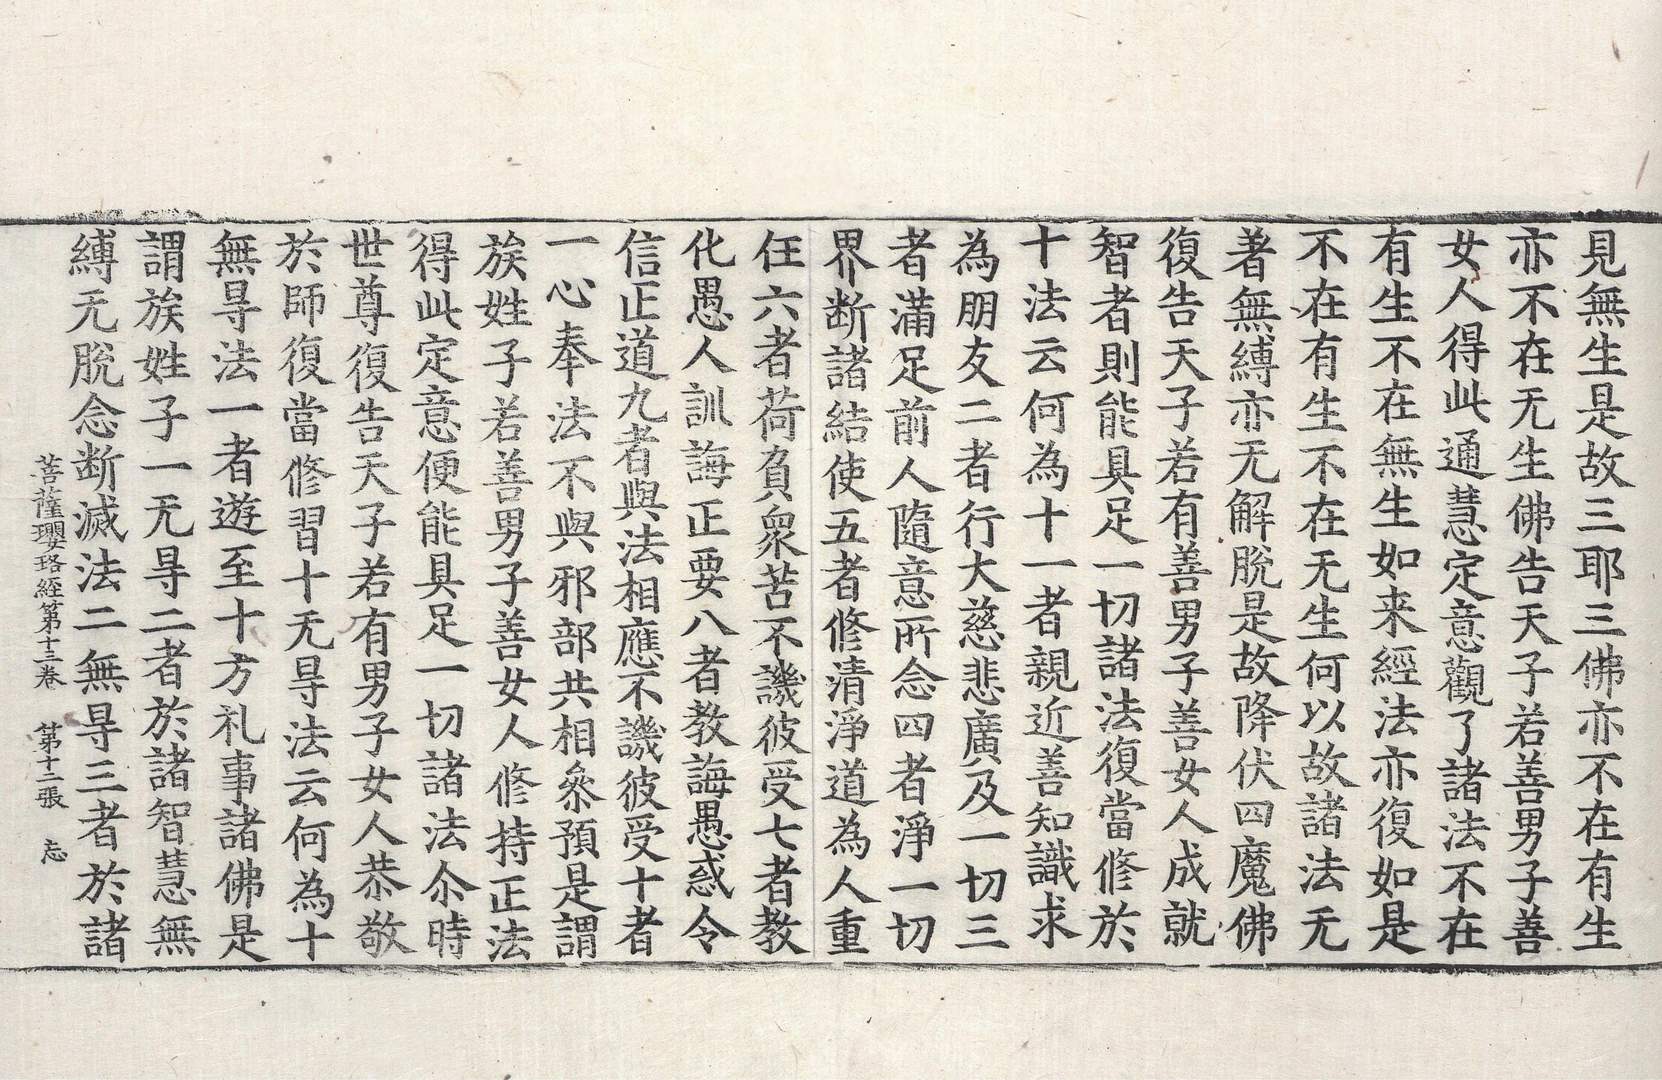 見無生是故三耶三佛亦不在有生
亦不在无生佛告天子若善男子善
女人得此通慧定意觀了諸法不在
有生不在無生如来經法亦復如是
不在有生不在无生何以故諸法无
著無縛亦无解脫是故降伏四魔佛
復告天子若有善男子善女人成就
智者則能具足一切諸法復當修於
十法云何為十一者親近善知識求
為朋友二者行大慈悲廣及一切三
者滿足前人隨意所念四者淨一切
界断諸結使五者修清淨道為人重
任六者荷負衆苦不譏彼受七者教
化愚人訓誨正要八者教誨愚惑令
信正道九者與法相應不譏彼受十者
一心奉法不與邪部共相叅預是謂
族姓子若善男子善女人修持正法
得此定意便能具足一切諸法尒時
世尊復告天子若有男子女人恭敬
於師復當修習十无㝵法云何為十
無㝵法一者遊至十方礼事諸佛是
謂族姓子一无㝵二者於諸智慧無
縛无脫念断滅法二無㝵三者於諸
菩薩瓔珞經第十三卷　第十二張　忘